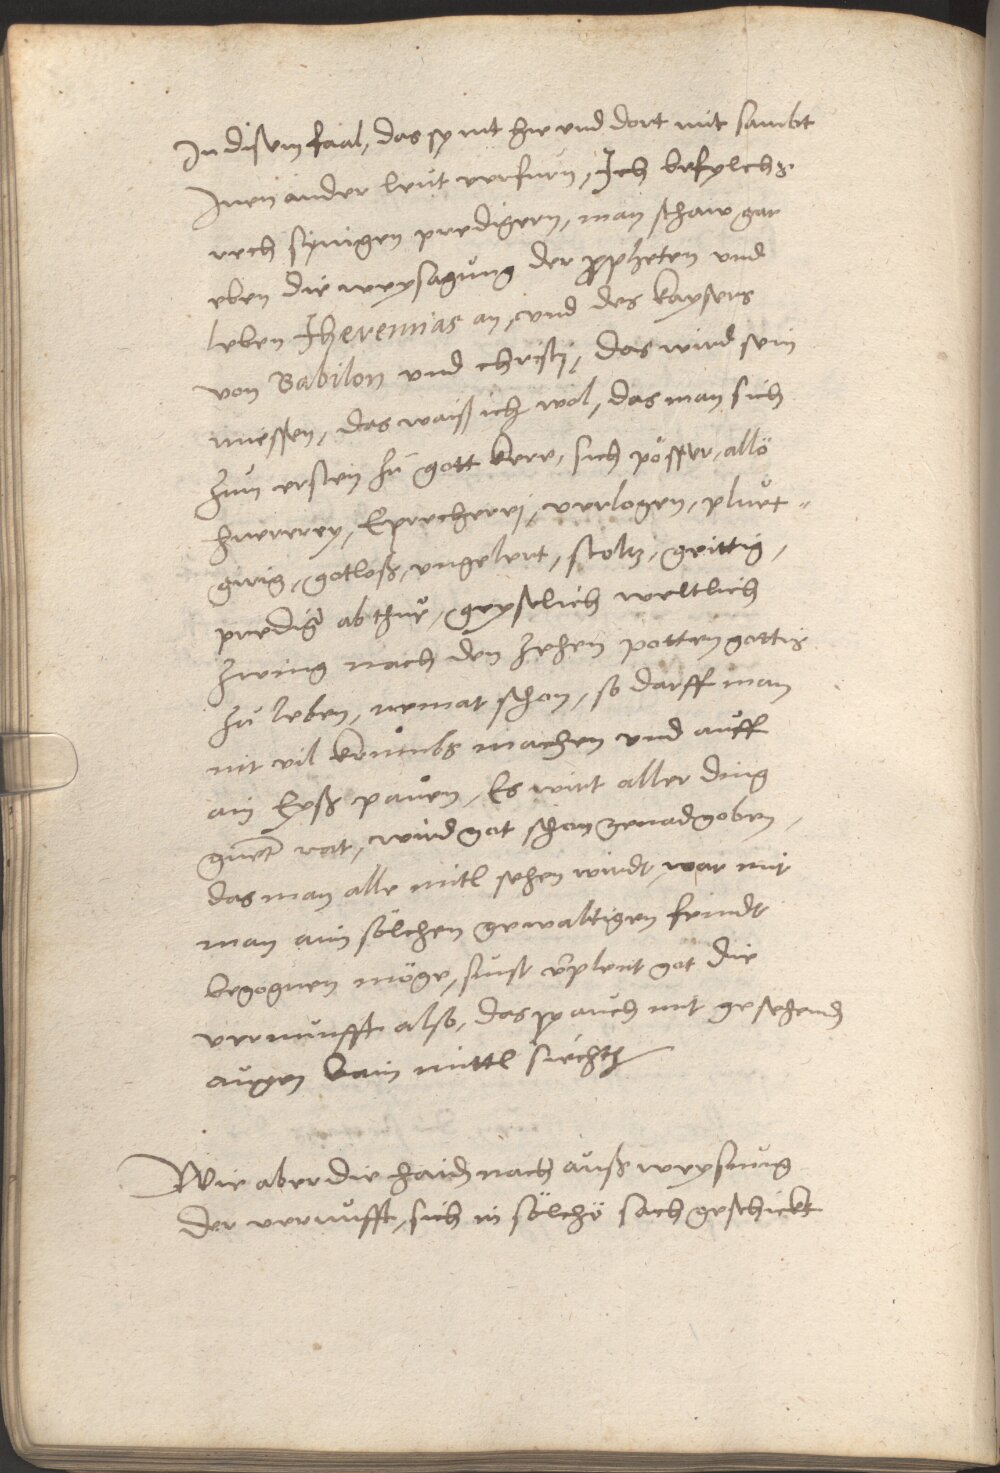 In disem faal, das sy nit hie und dort mit sambt
Inen ander leut verfurn, Ich befylchs
rech synigen predigern, man schaw gar
eben die weysagung der propheten und
leben Jheremias an, und des kaysers
von Babilon und christj, das wird sein
miessen, das waiß ich wol, das man sich
zum ersten zu gott kere, sich pösser, allö
huererey, Eprecherej, verlogen, pluet-
girig, gotloß, ungelert, stoltz, geittig,
prediger ab thue, geystlich weltlich
zwing nach den zehen potten gottis
zu leben, nemat schon, so darff man
nit vil krumbs machen und auff
ain Eyß pauen, Es wirt aller ding
guet rat, wird got schon genad geben,
das man alle mitl sehen wirdt, war mit
man aim sölchen gewaltigen feindt
begegnen möge, sunst verplent got die
vernunfft also, das sy auch mit gesehend
augen kain mittl siecht

Wie aber die haid nach außweysung
der vernunfft, sich in sölchö sach geschickt